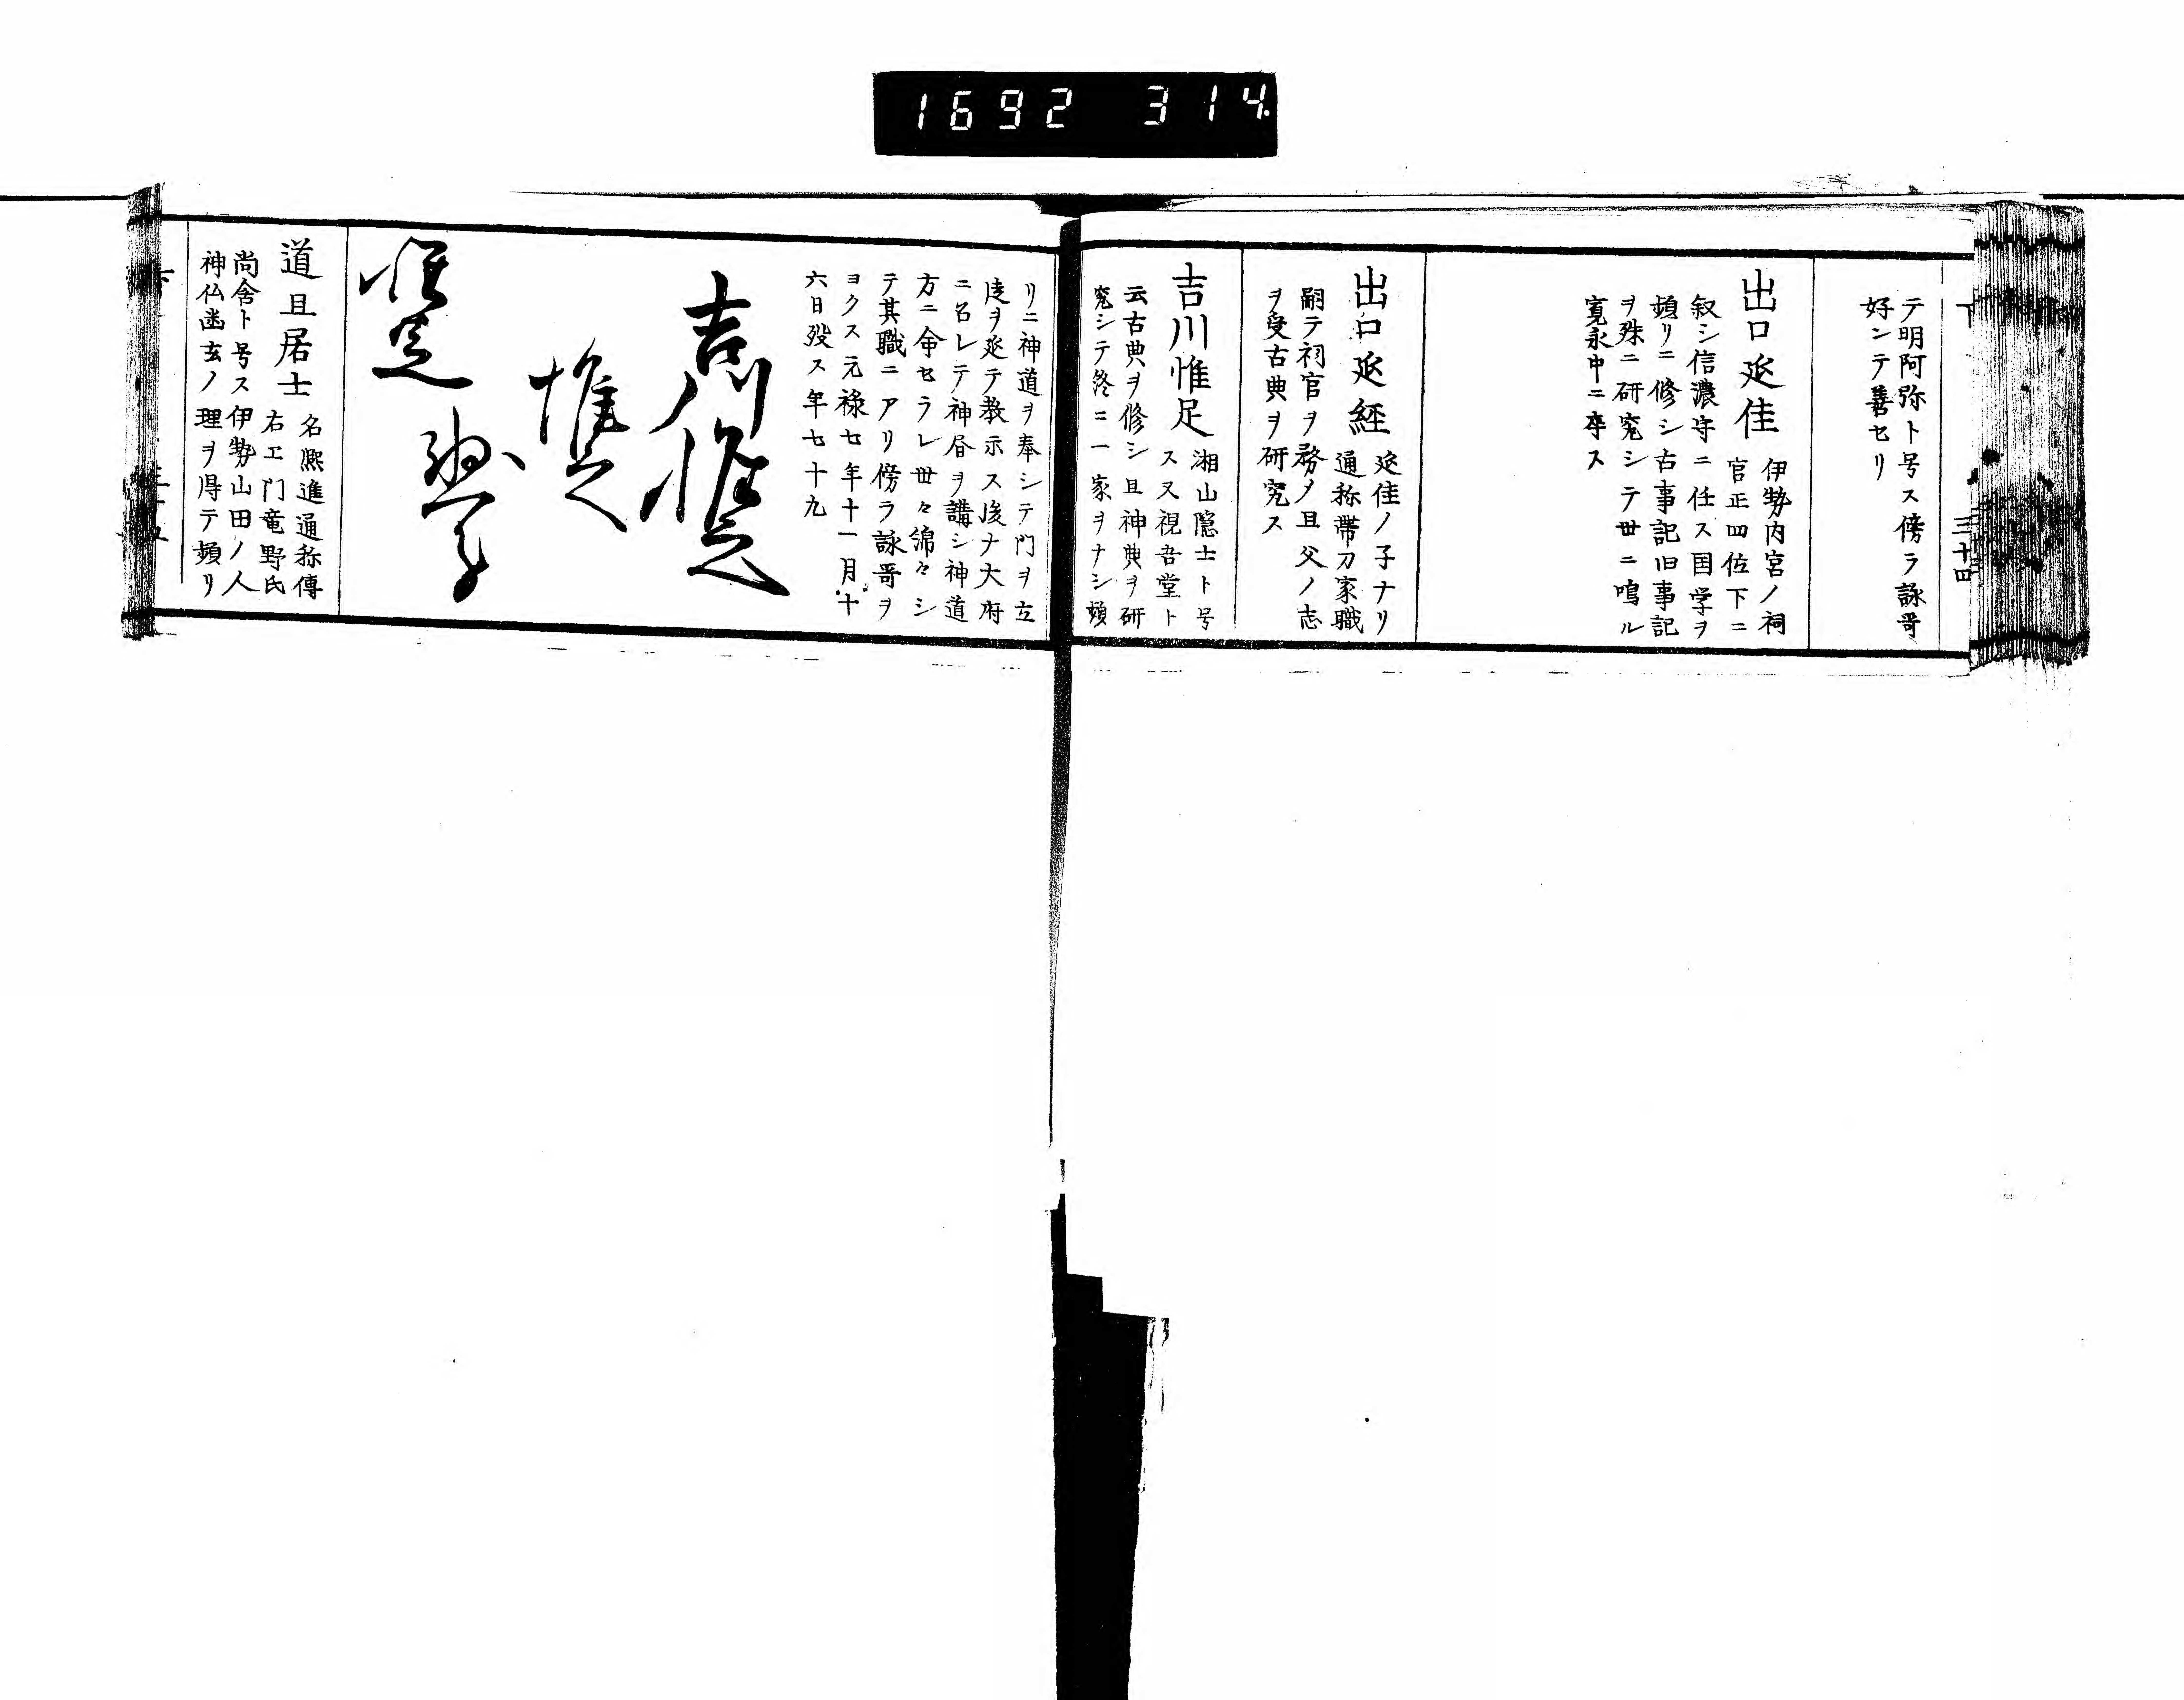 1692 314.
下 三十四
テ明阿弥ト号ス傍ラ詠哥
好ンテ善セリ
出口延佳
伊勢内宮ノ祠
官正四位下ニ
叙シ信濃守ニ任ス国学ヲ
頻リニ修シ古事記旧事記
ヲ殊ニ研究シテ世ニ鳴ル
寛永中ニ卒ス
出口延経
延佳ノ子ナリ
通称帯刀家職
嗣テ祠官ヲ務メ且父ノ志
ヲ受古典ヲ研究ス
吉川惟足
湘山隠士ト号
ス又視吾堂ト
云古典ヲ修シ且神典ヲ研
究シテ終ニ一家ヲナシ頻
リニ神道ヲ奉シテ門ヲ立
徒ヲ延テ教示ス後ナ大府
ニ召レテ神唇ヲ講シ神道
方ニ命セラレ世々綿々シ
テ其職ニアリ傍ラ詠哥ヲ
ヨクス元禄七年十一月十
六日歿ス年七十九
吉川惟足
惟足
惟足
道且居士
名熈進通称傳
右エ門竜野氏
尚舎ト号ス伊勢山田ノ人
神仏幽玄ノ理ヲ得テ頻リ